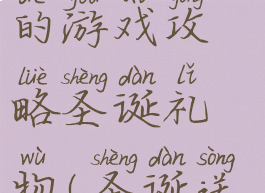 的游戏攻
lüè shèng dàn lǐ
略圣诞礼
wù shèng dàn sòng
物(圣诞送